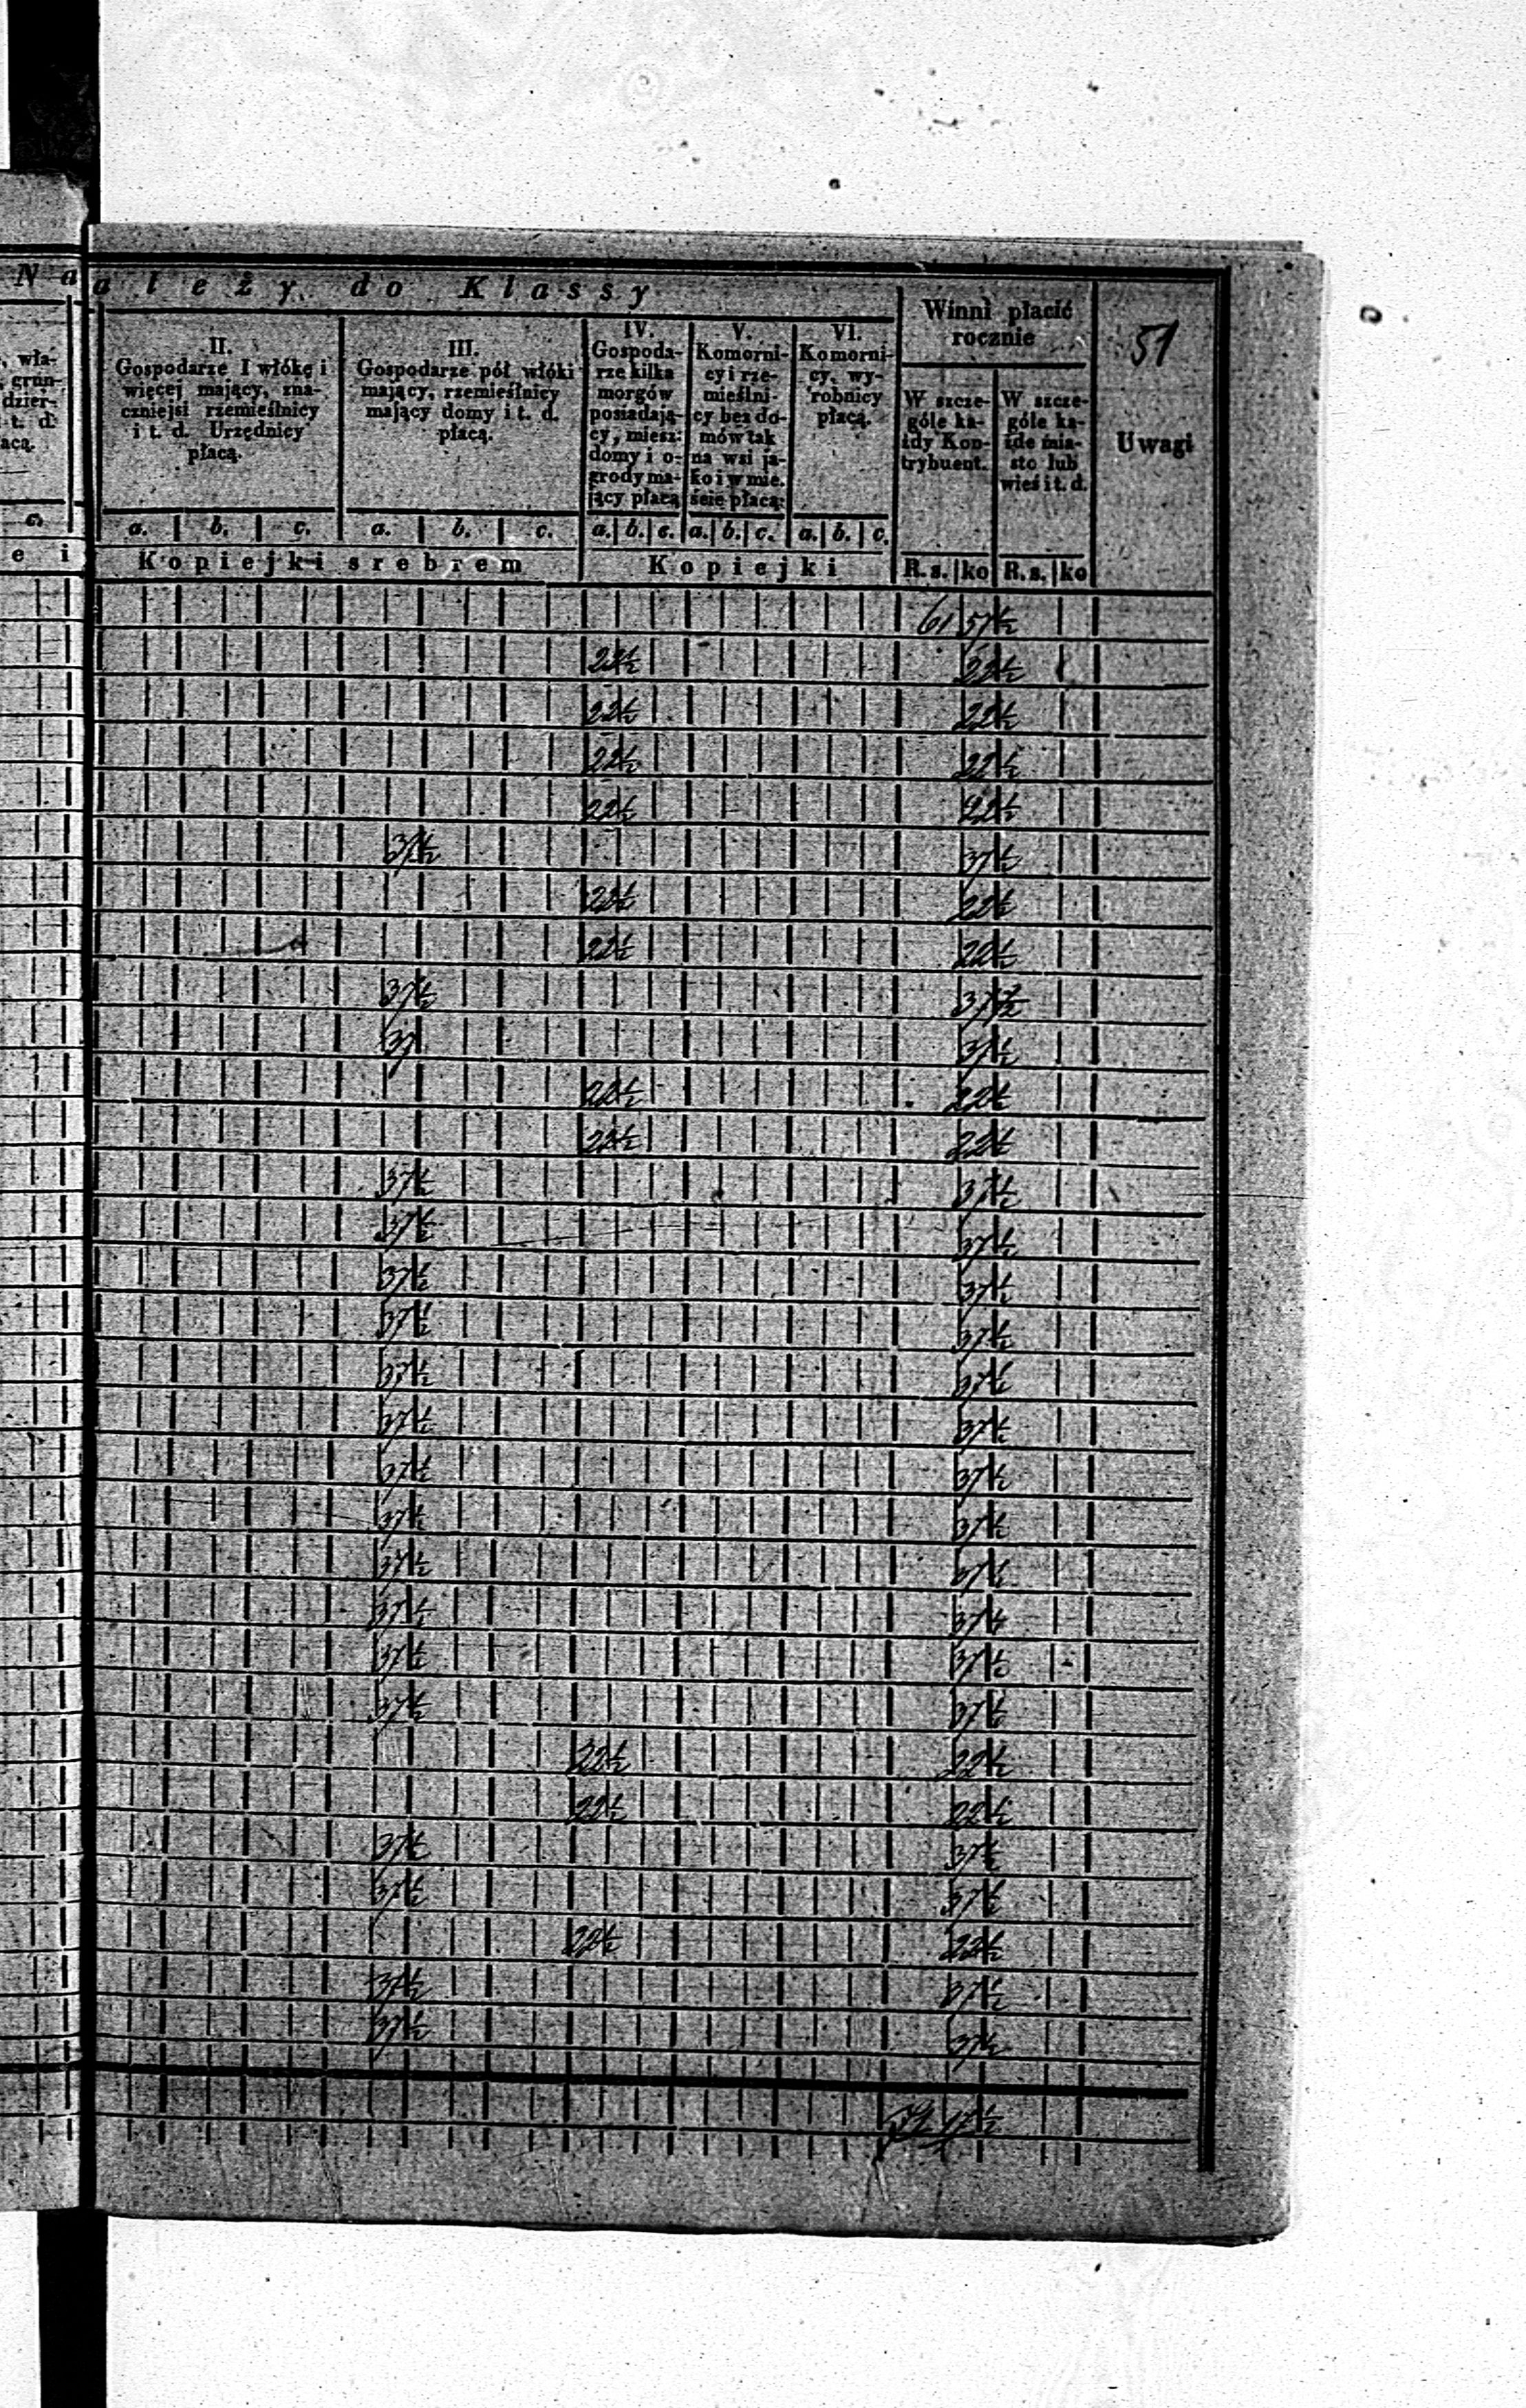 N a a l e ż y d o K l a s s y
Winni płacić rocznie
51
, wła-
grun-
dzier-
t. d.
acą.
II.
Gospodarze I włókę i
więcej mający, zna-
czniejsi rzemieślnicy
i t. d. Urzędnicy
płacą.
III.
Gospodarze pół włóki
mający, rzemieślnicy
mający domy i t. d.
płacą.
IV.
Gospoda-
rze kilka
morgów
posiadają-
cy, miesz:
domy i o-
grody ma-
jący płacą
V.
Komorni-
cy i rze-
mieślni-
cy bez do-
mów tak
na wsi ja-
ko i w mie.
ście płacą:
VI.
Komorni-
cy, wy-
robnicy
płacą.
W szcze-
góle ka-
żdy Kon-
trybuent.
W szcze-
góle ka-
żde mia-
sto lub
wieś i t. d.
Uwagi
c. a. b. c. a. b. c. a. b. c. a. b. c. a. b. c.
e i Kopiejki srebrem Kopiejki R. s. ko R. s. ko
61 57½
22½ 22½
22½ 22½
22½ 22½
22½ 22½
37½ 37½
22½ 22½
22½ 22½
37½ 37½
37 37½
22½ 22½
22½ 22½
37½ 37½
37½ 37½
37½ 37½
37½ 37½
37½ 37½
37½ 37½
37½ 37½
37½ 37½
37½ 37½
37½ 37½
37½ 37½
37½ 37½
22½ 22½
22½ 22½
37½ 37½
37½ 37½
22½ 22½
37½ 37½
37½ 37½